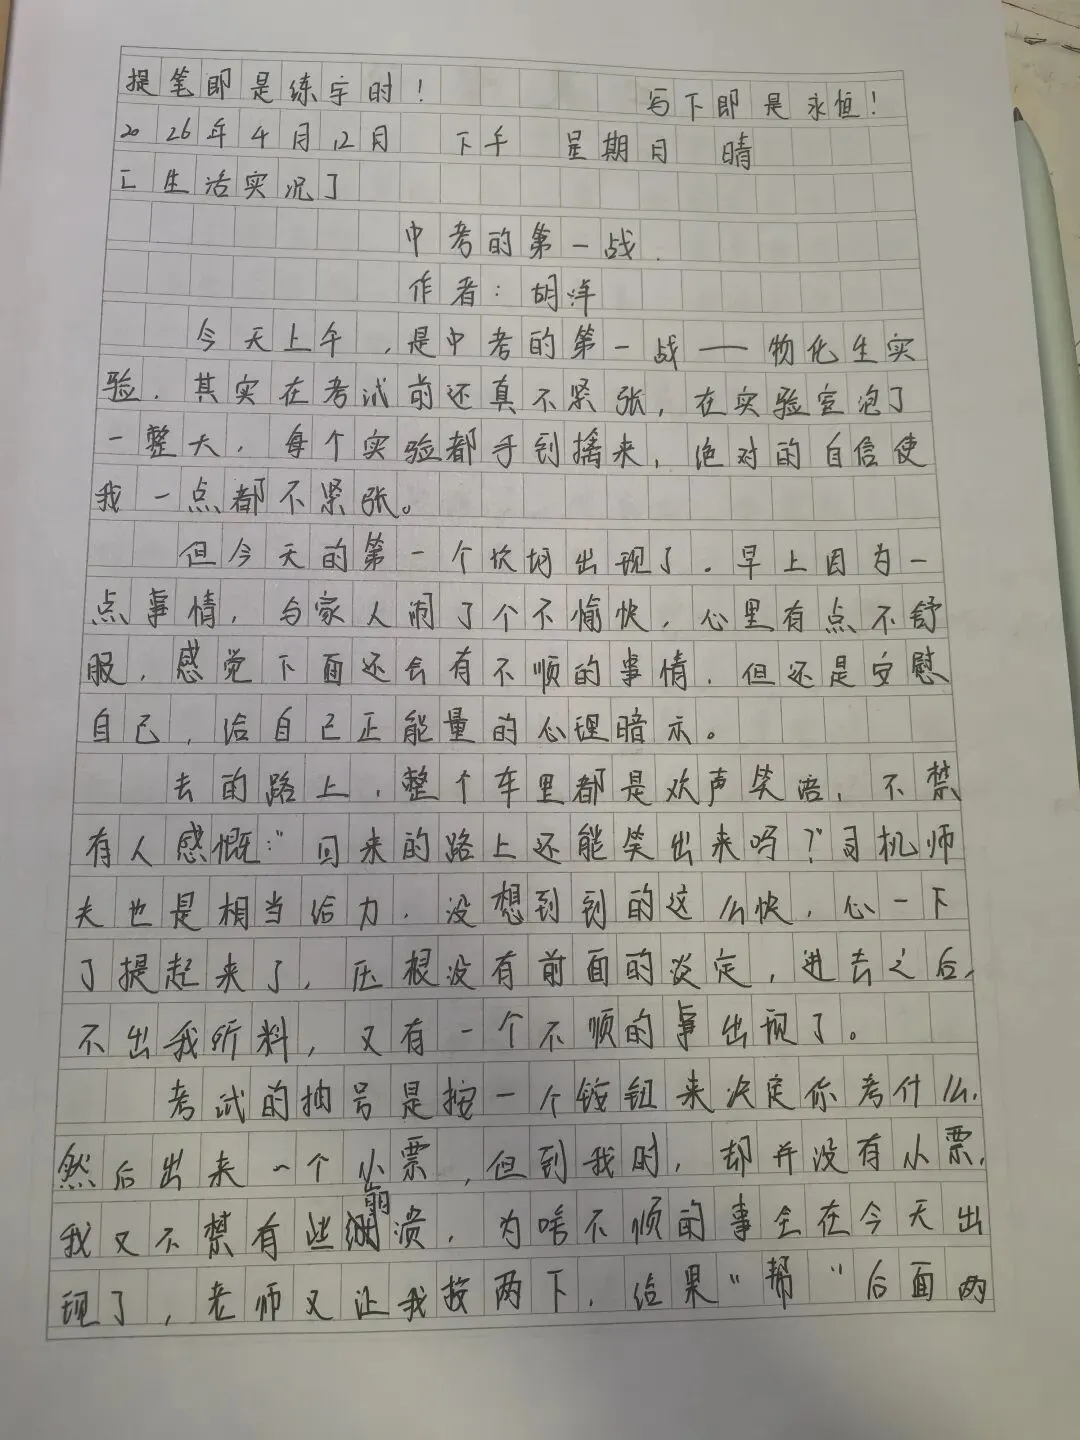 提笔即是练字时！ 写下即是永恒！
2026年4月12月 下午 星期日 晴
匚生活实况了
中考的第一战.
作者：胡洋
今天上午，是中考的第一战——物化生实
验．其实在考试前还真不紧张，在实验室泡了
一整天，每个实验都手到擒来，绝对的自信使
我一点都不紧张。
但今天的第一个坎坷出现了．早上因为一
点事情，与家人闹了个不愉快，心里有点不舒
服，感觉下面还会有不顺的事情，但还是安慰
自己，给自己正能量的心理暗示。
去的路上，整个车里都是欢声笑语，不禁
有人感慨：“回来的路上还能笑出来吗？”司机师
夫也是相当给力，没想到到的这么快，心一下
了提起来了，压根没有前面的淡定，进去之后，
不出我所料，又有一个不顺的事出现了。
考试的抽号是按一个铵钮来决定你考什么，
然后出来一个小票，但到我时，却并没有小票，
我又不禁有些崩溃，为啥不顺的事全在今天出
现了，老师又让我按两下，给果“帮”后面两